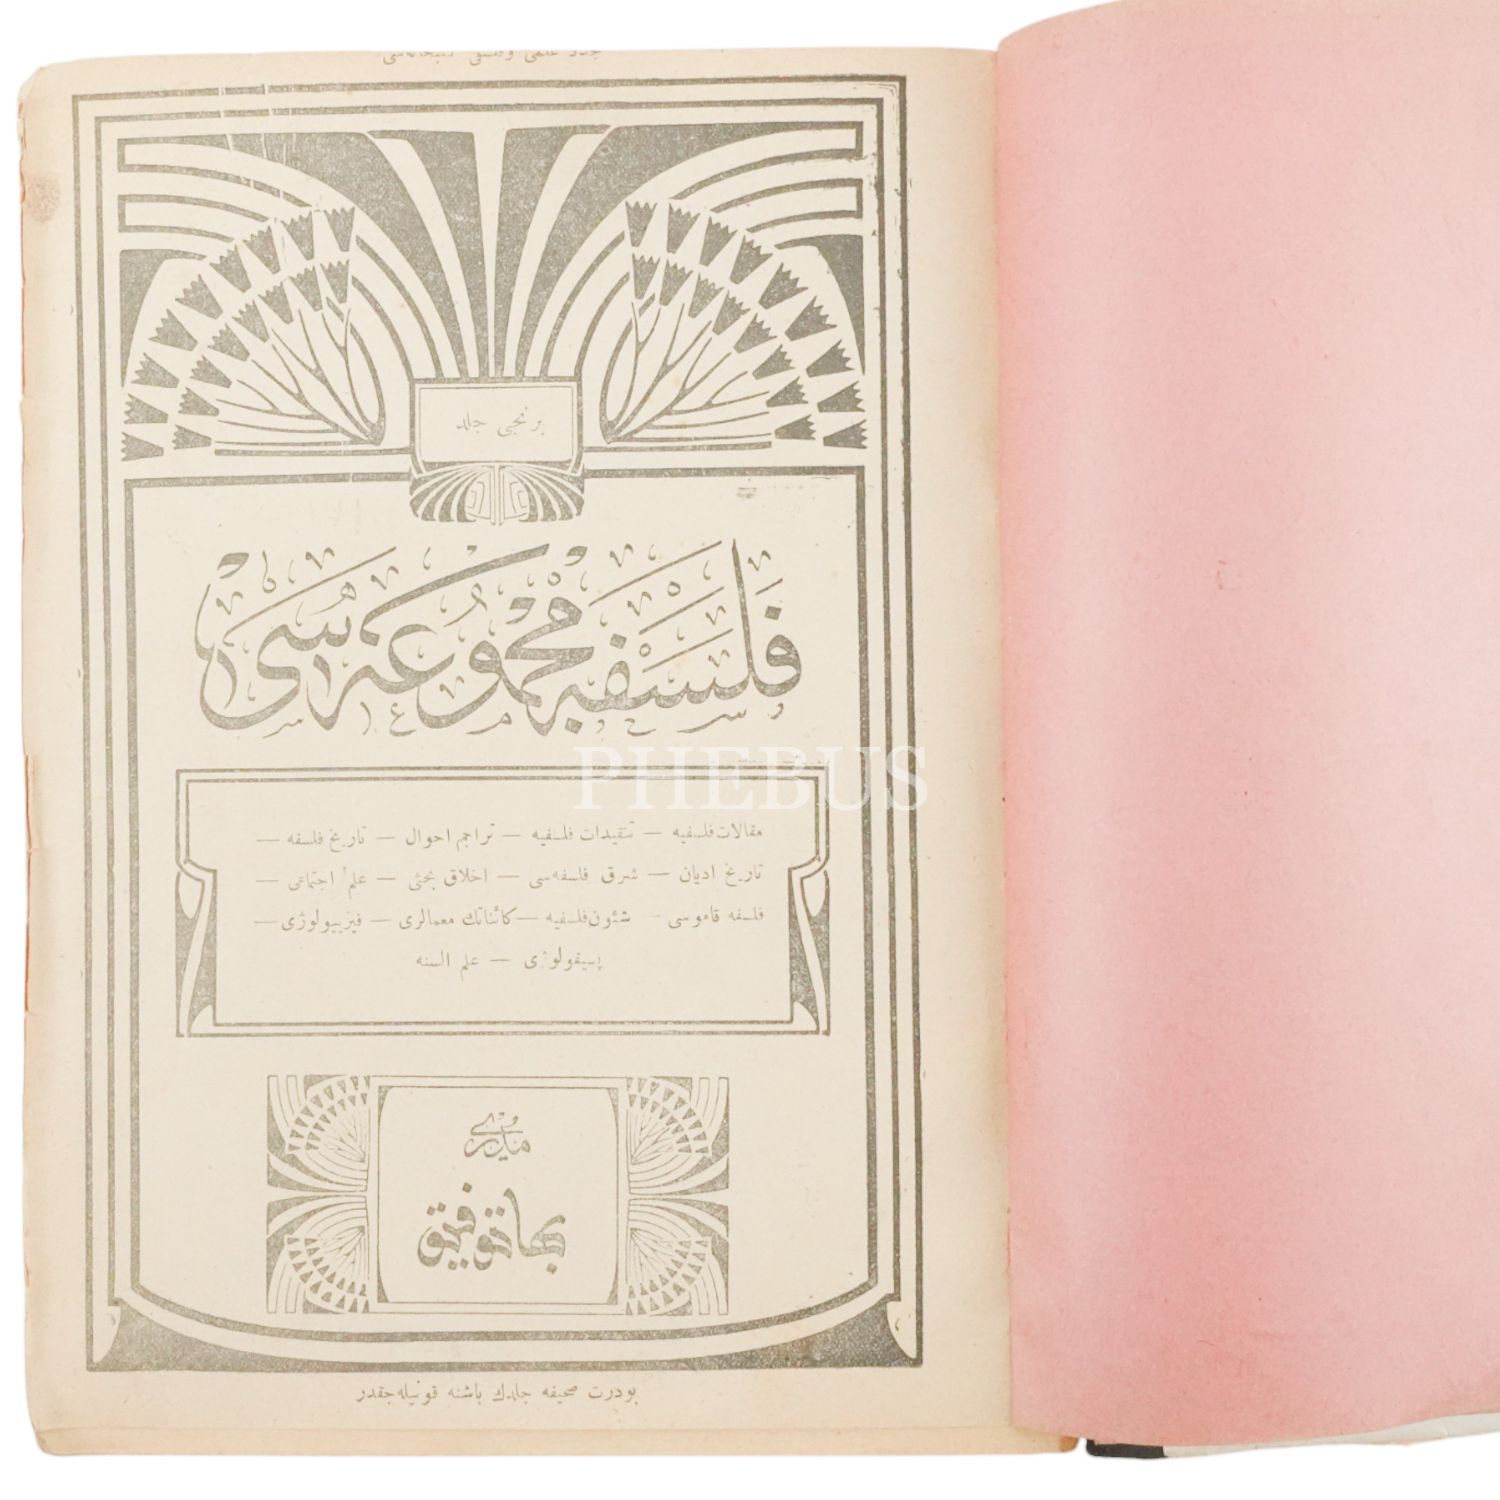 علمی وفلسفی کتبخانه‌سی
برنجی جلد
فلسفه مجموعه‌سی
PHEBUS
مقالات فلسفیه — تنقیدات فلسفیه — تراجم احوال — تاریخ فلسفه —
تاریخ ادیان — شرق فلسفه‌سی — اخلاق بحثی — علم اجتماعی —
فلسفه قاموسی — شئون فلسفیه — کائناتك معمالری — فیزییولوژی —
پسیقولوژی — علم السنه
مدیری
بها توفیق
بودرت صحیفه جلدك باشنه قونیله‌جقدر